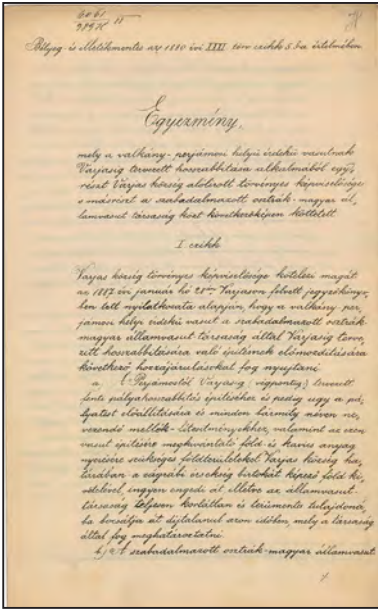 Bélyeg- és illetékmentes az 1880 évi XXXI. törv. czikk 5. §-a értelmében
Egyezmény,
mely a valkány-perjámosi helyi érdekü vasutnak
Varjasig tervezett hosszabbitása alkalmából egy-
részt Varjas község alolirott törvényes képviselősége
s másrészt a szabadalmazott osztrák-magyar ál-
lamvasut társaság közt következőképen köttetett
I. czikk
Varjas község törvényes képviselősége kötelezi magát
az 1887 évi január hó 28án Varjason felvett jegyzőkönyv-
ben tett nyilatkozata alapján, hogy a valkány-per-
jámosi helyi érdekü vasut a szabadalmazott osztrák-
magyar államvasut társaság által Varjasig terve-
zett hosszabbitására való épitésnek előmozditására
következő hozzájárulásokat fog nyujtani
a. A Perjámostól Varjasig (végpontig) tervezett
fenti pályahosszabbitás épitéséhez és pedig ugy a pá-
lyatest előállitására és minden bármily néven ne-
vezendő mellék-létesitményekhez, valamint az ezen
vasut épitésére megkivántató föld és kavics anyag
nyerésére szükséges földterületeket Varjas község ha-
tárában a zágrábi érsekség birtokát képező föld ki-
vételével, ingyen engedi át illetve az államvasut-
társaság teljesen korlátlan és tehermentes tulajdoná-
ba bocsátja át dijtalanul azon időben, mely a társaság
által fog meghatároztatni.
b) A szabadalmazott osztrák-magyar államvasut